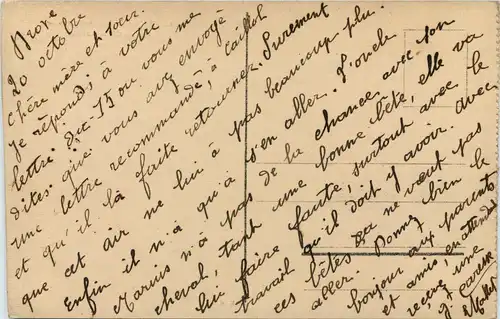 20 octobre
Chère mère et sœur
je répond; à votre
lettre du 15 ou vous me
dites que vous avez envoyé
une lettre recommandé, à
et qu'il la faite retourner. Surement
que cet air ne lui à pas beaucoup plu.
Enfin il n'a qu'à s'en aller. J'oncle
Marius n'a pas de la chance avec son
cheval, tant une bonne bête, elle va
lui faire faute, surtout avec le
travail qu'il doit y avoir. Avec
ces bêtes ça ne veut pas
aller. Donnez bien le
bonjour aux parents
et amis, en attendant
recevez une
caresse